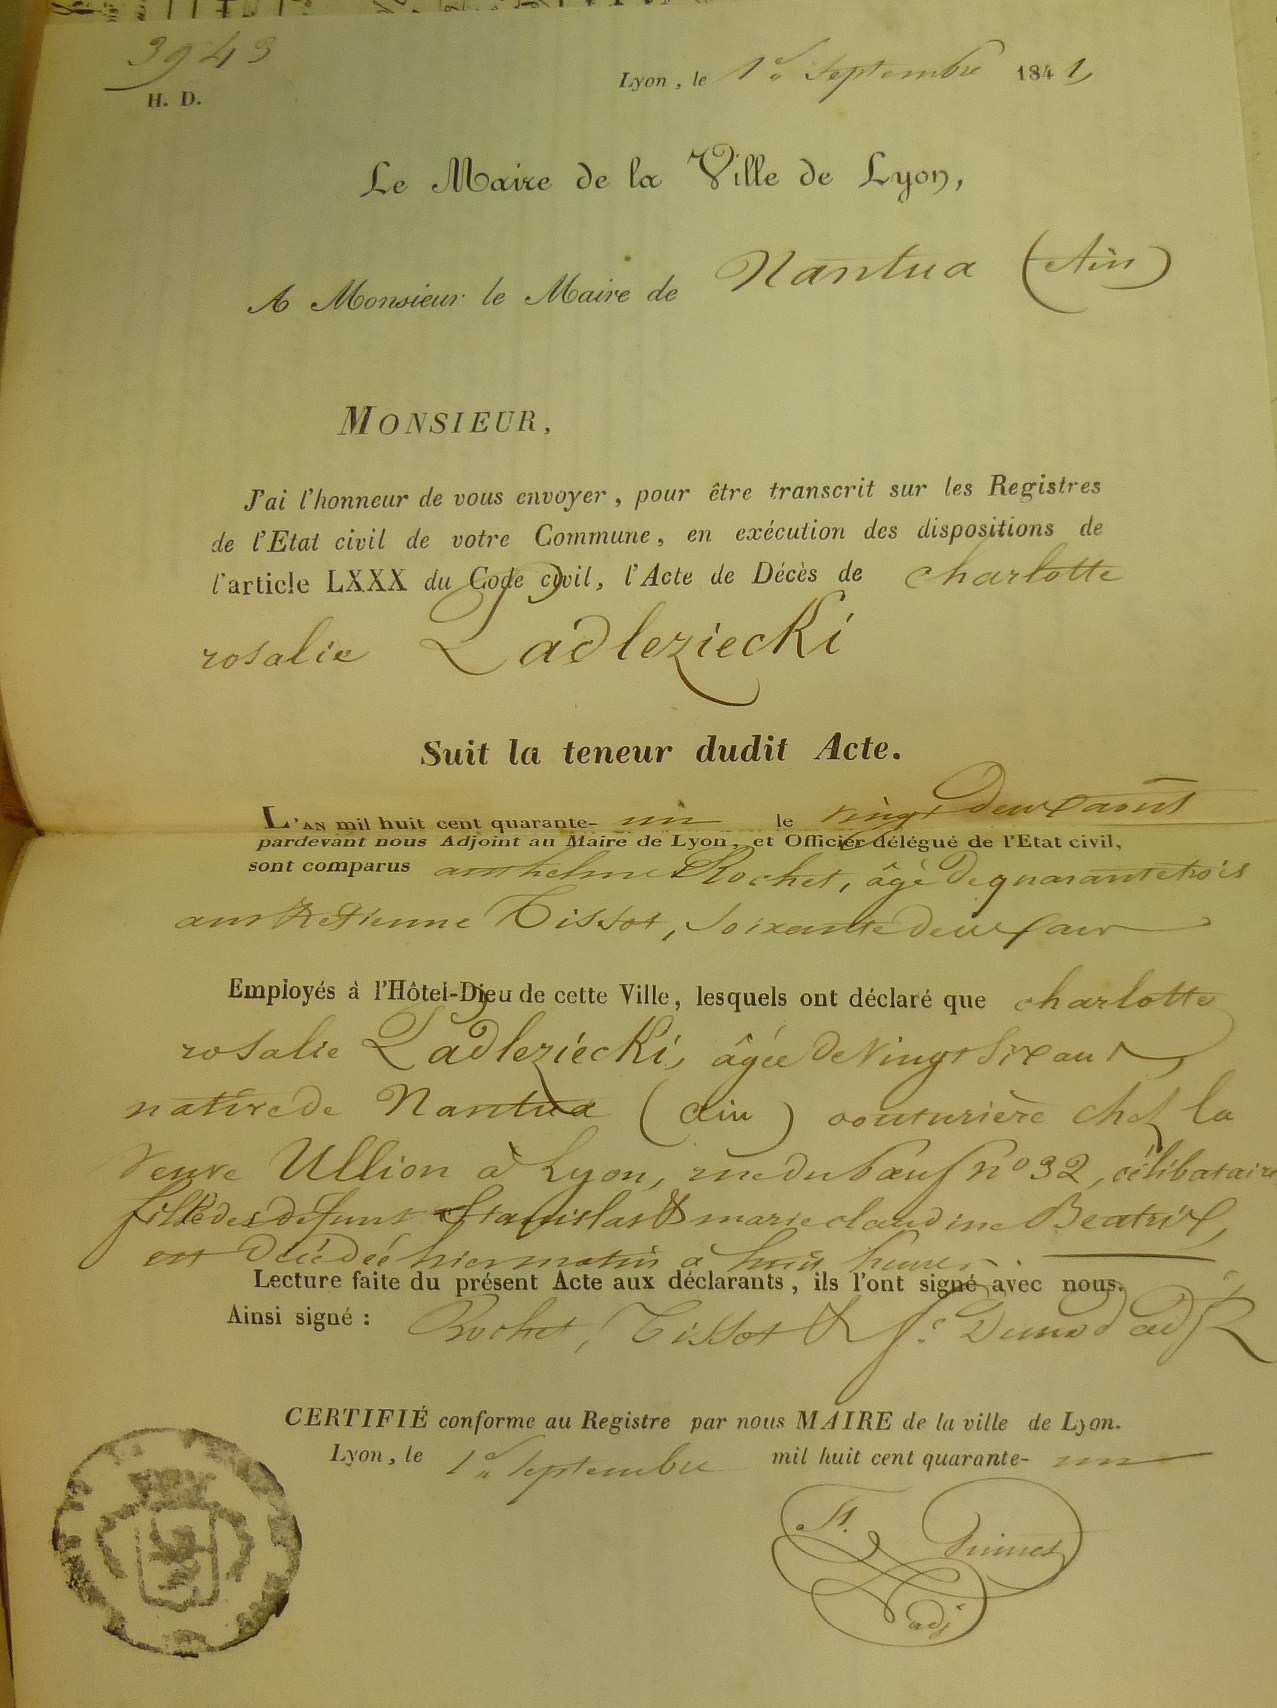 3943
H. D.
Lyon, le 1er Septembre 1841,
Le Maire de la Ville de Lyon,
A Monsieur le Maire de Nantua (Ain)
MONSIEUR,
J'ai l'honneur de vous envoyer, pour être transcrit sur les Registres
de l'Etat civil de votre Commune, en exécution des dispositions de
l'article LXXX du Code civil, l'Acte de Décès de charlotte
rosalie Ladleziecki
Suit la teneur dudit Acte.
L'AN mil huit cent quarante- un le vingt deux aout
pardevant nous Adjoint au Maire de Lyon, et Officier délégué de l'Etat civil,
sont comparus anthelme Rochet, âgé de quarante trois
ans & etienne Tissot, soixante deux ans
Employés à l'Hôtel-Dieu de cette Ville, lesquels ont déclaré que charlotte
rosalie Ladleziecki, âgée de vingt Six ans
native de Nantua (ain) couturière chez la
veuve Ullion à Lyon, rue du bœuf nº 32, célibataire
fille des défunts Stanislas & marie claudine Beatrix,
est décédée hier matin à huit heures.
Lecture faite du présent Acte aux déclarants, ils l'ont signé avec nous.
Ainsi signé : Rochet, Tissot & adj
CERTIFIÉ conforme au Registre par nous MAIRE de la ville de Lyon.
Lyon, le 1er Septembre mil huit cent quarante- un
adj